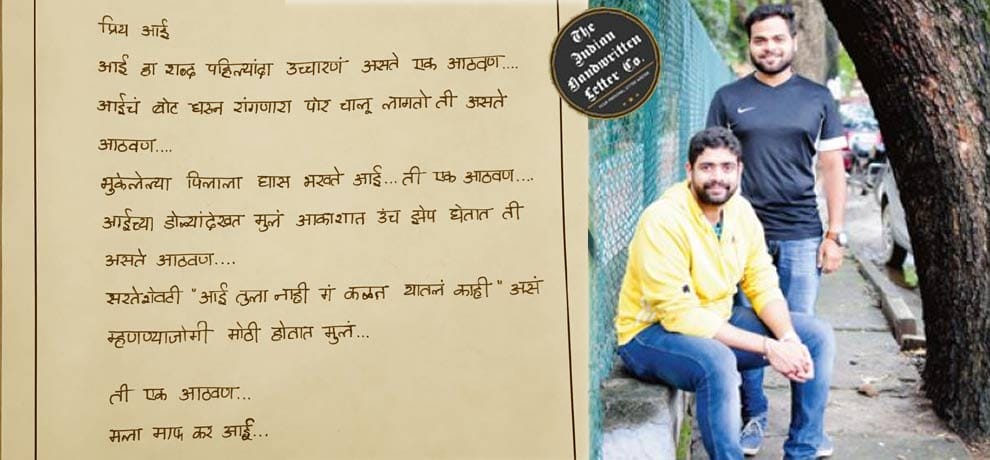 प्रिय आई
आई हा शब्द पहिल्यांदा उच्चारणं असते एक आठवण....
आईचं बोट धरून रांगणारा पोर चालू लागतो ती असते
आठवण....
भुकेलेल्या पिलाला घास भरवते आई... ती एक आठवण....
आईच्या डोळ्यांदेखत मुलं आकाशात उंच झेप घेतात ती
असते आठवण....
सरतेशेवटी "आई तुला नाही गं कळत यातलं काही" असं
म्हणण्याजोगी मोठी होतात मुलं...
ती एक आठवण...
मला माफ कर आई...
The
Indian
Handwritten
Letter Co.
YOUR PERSONAL LETTER WRITER